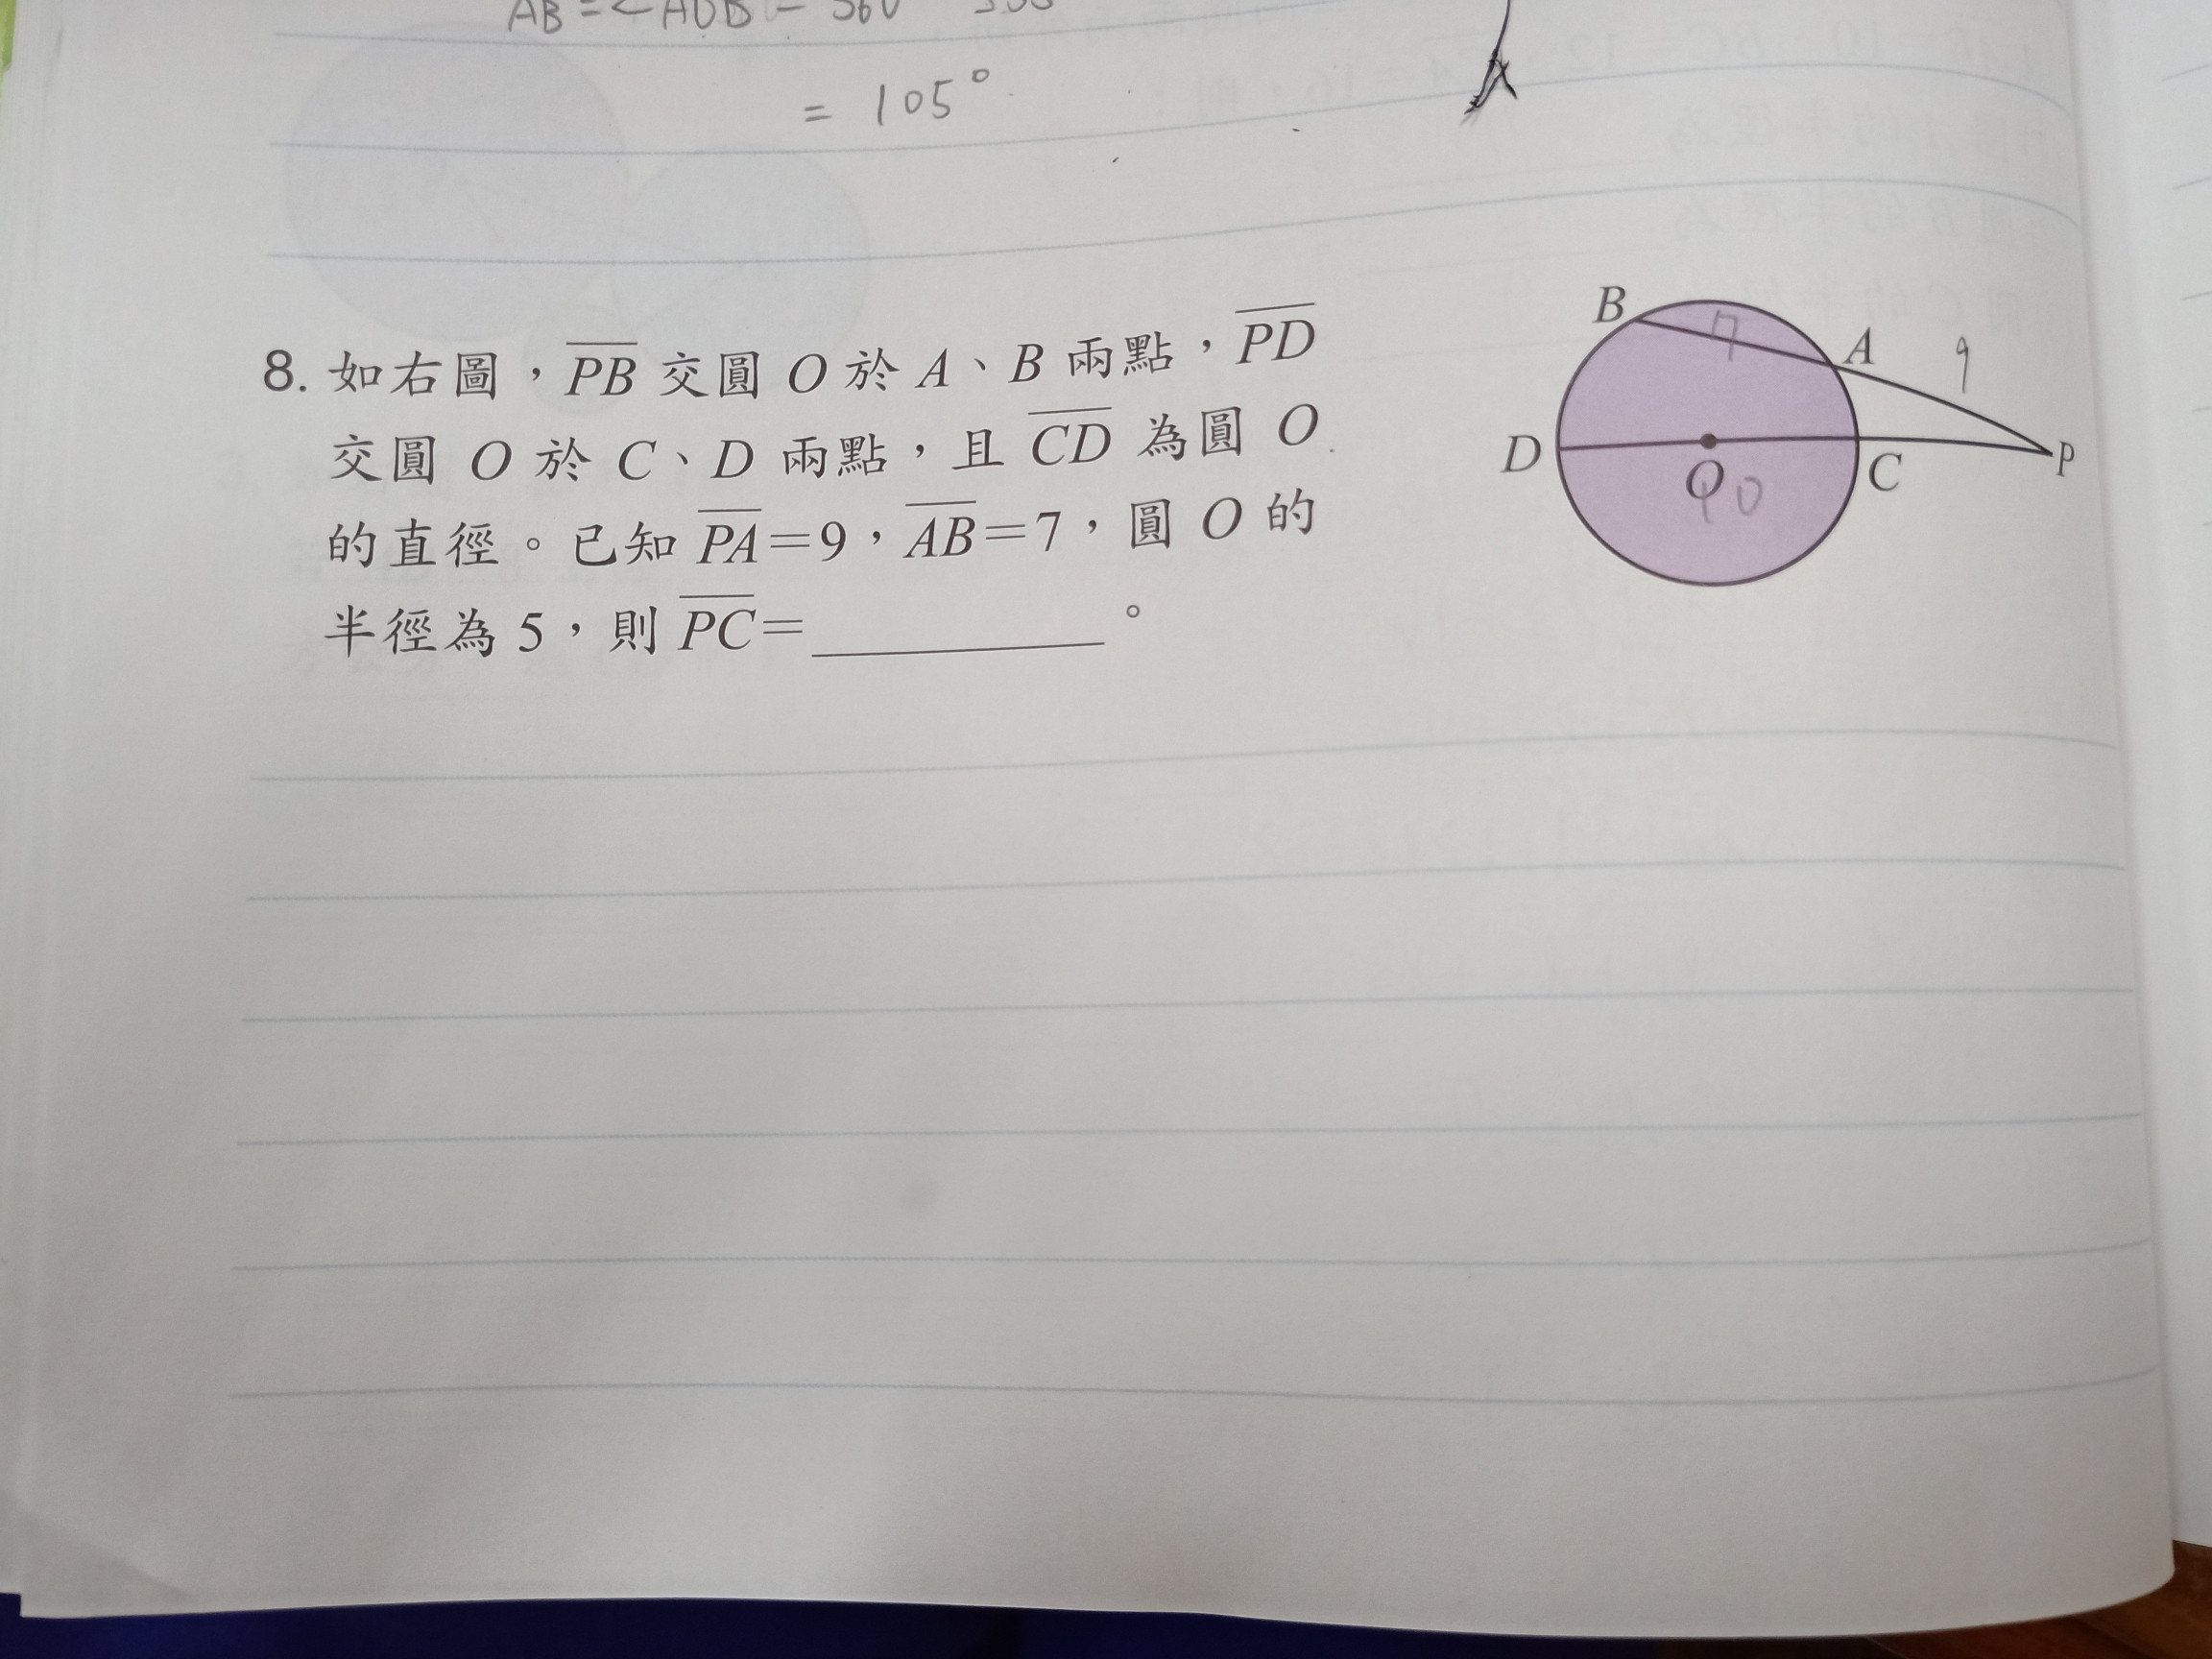 = 105°
8. 如右圖，PB 交圓 O 於 A、B 兩點，PD
交圓 O 於 C、D 兩點，且 CD 為圓 O
的直徑。已知 PA=9，AB=7，圓 O 的
半徑為 5，則 PC=＿＿＿＿。
B
7
A
9
D
O
10
C
P